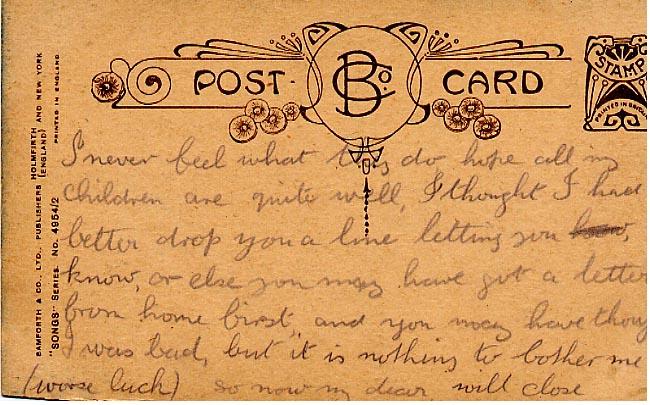 POST CARD
B Co.
STAMP
PRINTED IN
BAMFORTH & CO., LTD., PUBLISHERS HOLMFIRTH (ENGLAND) AND NEW YORK
"SONGS" SERIES. NO. 4954/2
PRINTED IN ENGLAND
I never feel what do hope all my
Children are quite well, I thought I had
better drop you a line letting you know,
know, or else you may have got a letter
from home first, and you may have thoug
I was bad, but it is nothing to bother me
(worse luck) so now my dear will close